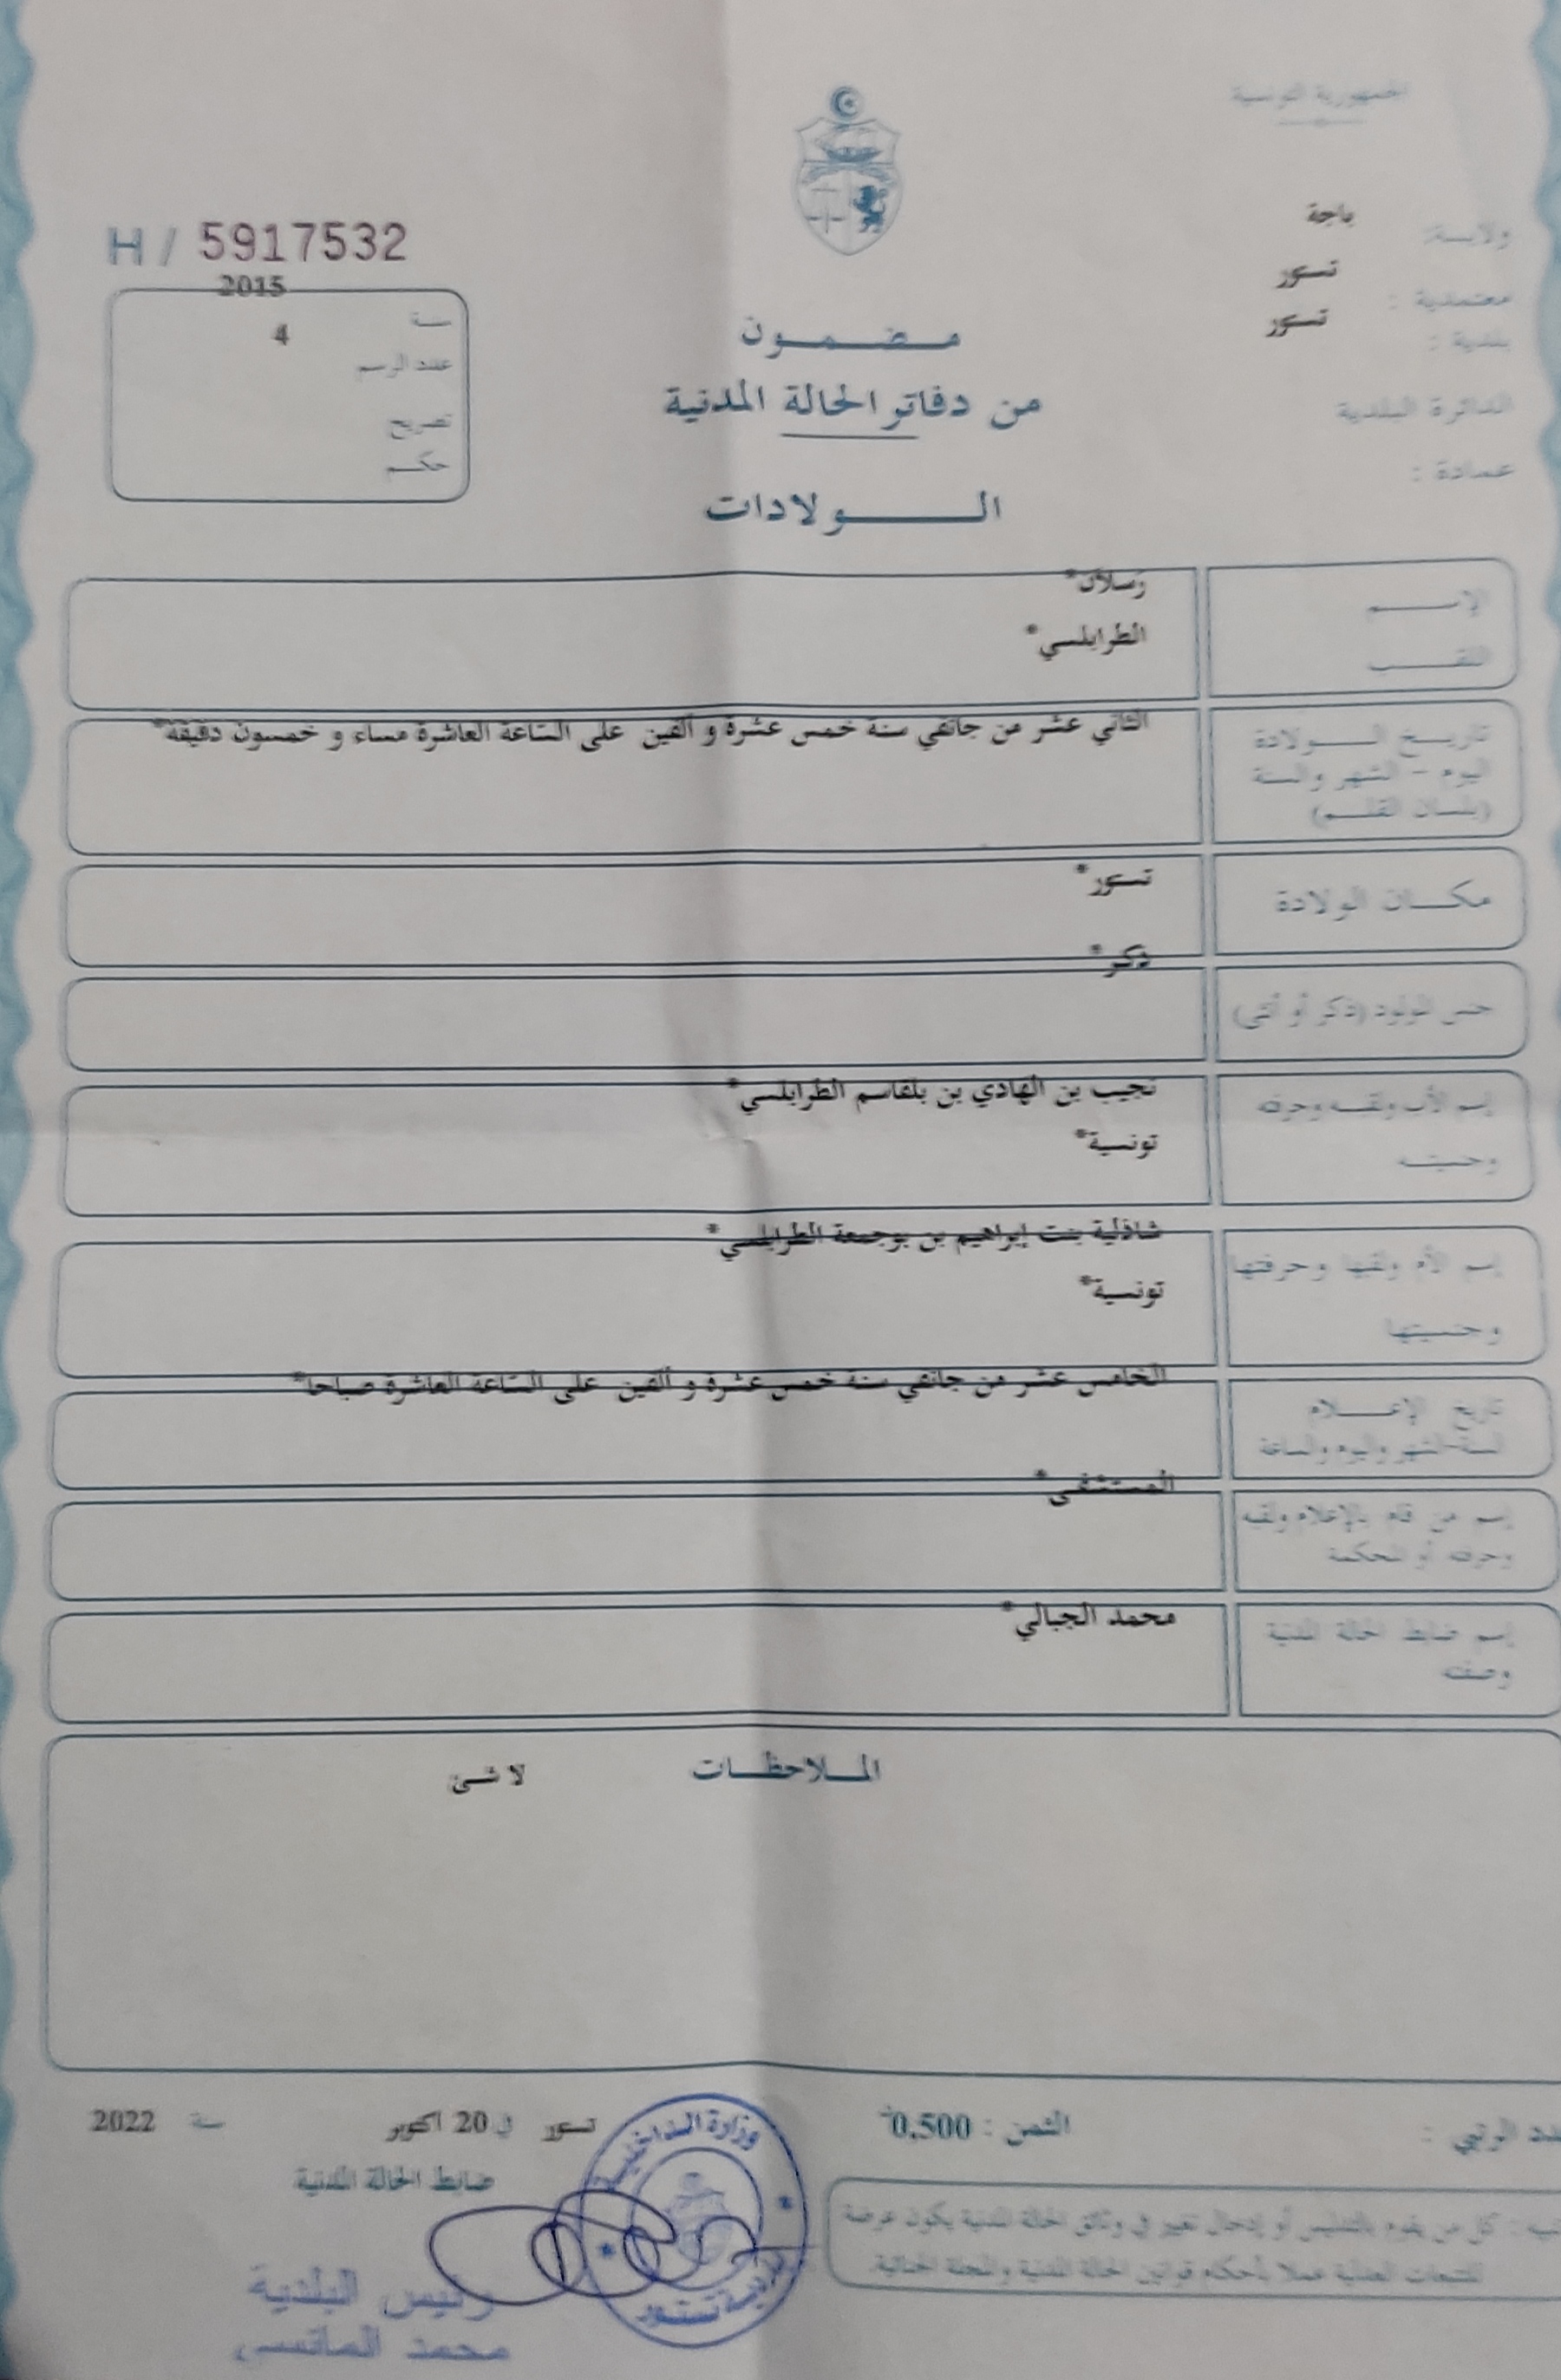 الجمهورية التونسية
ولايـــة: باجة
معتمدية : تستور
بلدية : تستور
الدائرة البلدية
عمادة :
H / 5917532
سنة 2015
عدد الرسم 4
تصريح
حكم
مضمون
من دفاتر الحالة المدنية
الولادات
الإسم رسلان*
اللقب الطرابلسي*
تاريخ الولادة
اليوم - الشهر والسنة
(بلسان القلم)
الثاني عشر من جانفي سنة خمس عشرة و ألفين على الساعة العاشرة مساء و خمسون دقيقة*
مكان الولادة تستور*
جنس المولود (ذكر أو أنثى) ذكر*
إسم الأب ولقبه وحرفته نجيب بن الهادي بن بلقاسم الطرابلسي*
وجنسيته تونسية*
إسم الأم ولقبها وحرفتها شاذلية بنت إبراهيم بن بوجمعة الطرابلسي*
وجنسيتها تونسية*
تاريخ الإعلام الخامس عشر من جانفي سنة خمس عشرة و ألفين على الساعة العاشرة صباحا*
السنة-الشهر واليوم والساعة
إسم من قام بالإعلام ولقبه المستشفى*
وحرفته أو المحكمة
إسم ضابط الحالة المدنية محمد الجبالي*
وصفته
الملاحظات لا شئ
الثمن : 0,500
تستور في 20 أكتوبر سنة 2022
ضابط الحالة المدنية
وزارة الداخلية
بلدية تستور
كل من يقوم بالتدليس أو إدخال تغيير في وثائق الحالة المدنية يكون عرضة
للتتبعات العدلية عملا بأحكام قوانين الحالة المدنية والمجلة الجنائية.
رئيس البلدية
محمد